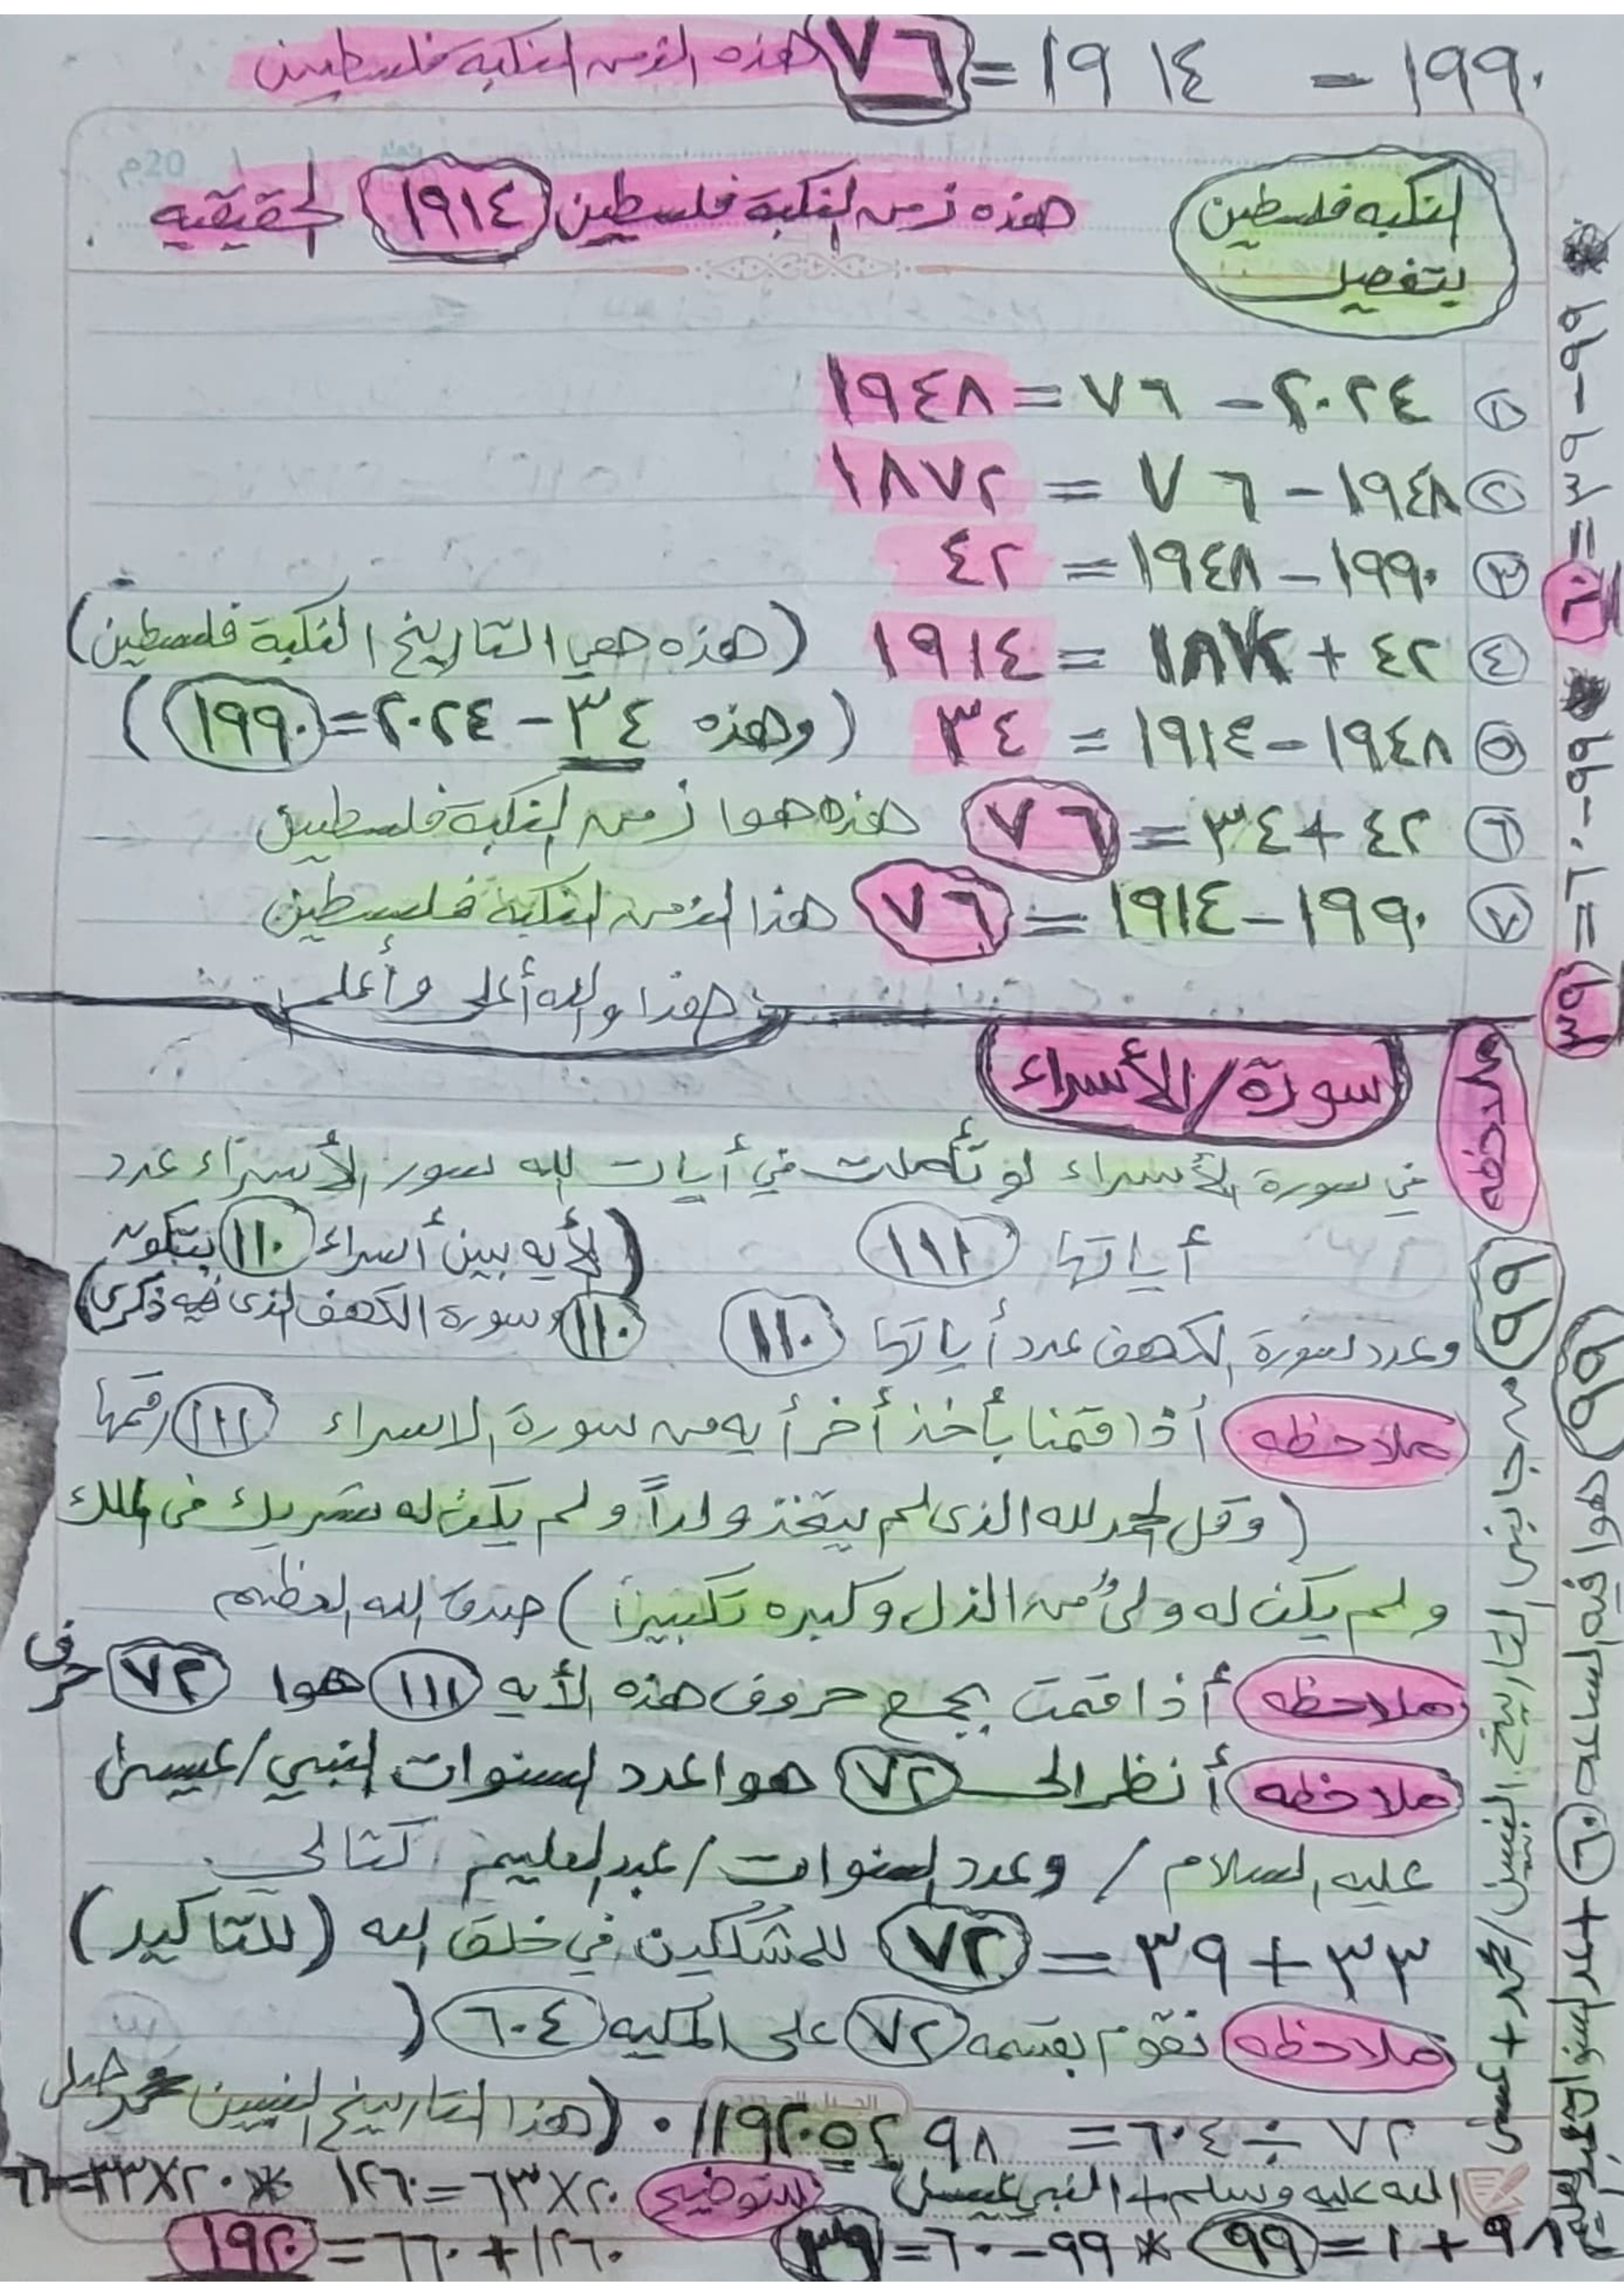 ١٩٩٠ - ١٩١٤ = ٧٦ هذه الزمن النكبه فلسطين
20م
النكبه فلسطين بتفصيل
هذه زمن النكبة فلسطين ١٩١٤ الحقيقيه
١ ٢٠٢٤ - ٧٦ = ١٩٤٨
٢ ١٩٤٨ - ٧٦ = ١٨٧٢
٣ ١٩٩٠ - ١٩٤٨ = ٤٢
٤ ٤٢ + ١٨٧٢ = ١٩١٤ (هذه هي التاريخ النكبة فلسطين)
٥ ١٩٤٨ - ١٩١٤ = ٣٤ (وهذه ٣٤ - ٢٠٢٤ = ١٩٩٠)
٦ ٤٢ + ٣٤ = ٧٦ هذه هوا زمن النكبة فلسطين
٧ ١٩٩٠ - ١٩١٤ = ٧٦ هذا الزمن النكبة فلسطين
هذا والله أعلى وأعلم
سورة / الأسراء
ملاحظه في سورة الأسراء لو تأملت في أيات الله سور الأسراء عدد
أياتها ١١١ (لأيه بين أسراء ١١٠ بيتكون
وعدد سورة الكهف عدد أياتها ١١٠ ١١٠ وسورة الكهف الذى فيه ذكرى)
ملاحظه أذا قمنا بأخذ أخر أيه من سورة الاسراء ١١١ رقمها
(وقل الحمد لله الذى لم يتخذ ولداً ولم يكن له شريك فى الملك
ولم يكن له ولىٌ من الذل وكبره تكبيرا) صدق الله العظيم
ملاحظه أذا قمت بجمع حروف هذه الأيه ١١١ هوا ٧٢ حرف
ملاحظه أنظر الى ٧٢ هوا عدد السنوات النبي / عيسى
عليه السلام / وعدد السنوات / عبد العليم كتالى
٣٣ + ٣٩ = ٧٢ للمشككين في خلق الله (للتاكيد)
ملاحظه نقوم بقسمه ٧٢ على المكيه ٦٠٤ (
٧٢ ÷ ٦٠٤ = ٠.١١٩٢٠٥٢٩٨ (هذا التاريخ النبيين محمد صلى
الله عليه وسلم + النبي عيسى للتوضيح ٢٠ × ٦٣ = ١٢٦٠ * ٢٠ × ٣٣ = ٦٦٠
٩٨ + ١ = ٩٩ * ٩٩ - ٦٠ = ٣٩ ١٢٦٠ + ٦٦٠ = ١٩٢٠
* ٩٩ - ٣٩ = ٦٠ * ٩٩ - ٦٠ = ٣٩
٩٩ من جانبى التاريخ النبيين / محمد + عيسى
٩٩ هوا فيه الساعه ٦٠ + عدد السنوات عبد العليم